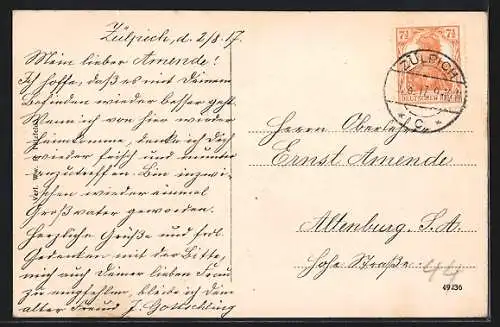 Zülpich, d. 2/8. 17.
Mein lieber Amende!
Ich hoffe, daß es mit Deinem
Befinden wieder besser geht.
Wenn ich von hier wieder
heimkomme, denke ich Dich
wieder frisch und munter
anzutreffen. Bin inzwi-
schen wieder einmal
Großvater geworden.
Herzliche Grüße und frdl.
Gedenken mit der Bitte,
mich auch Deiner lieben Frau
zu empfehlen, bleibe ich Dein
alter Freund J. Gottschling
7½ 7½
DEUTSCHES REICH
ZÜLPICH
Herrn Oberlehrer
Ernst Amende
Altenburg. S. A.
Hohe Straße 44
49436